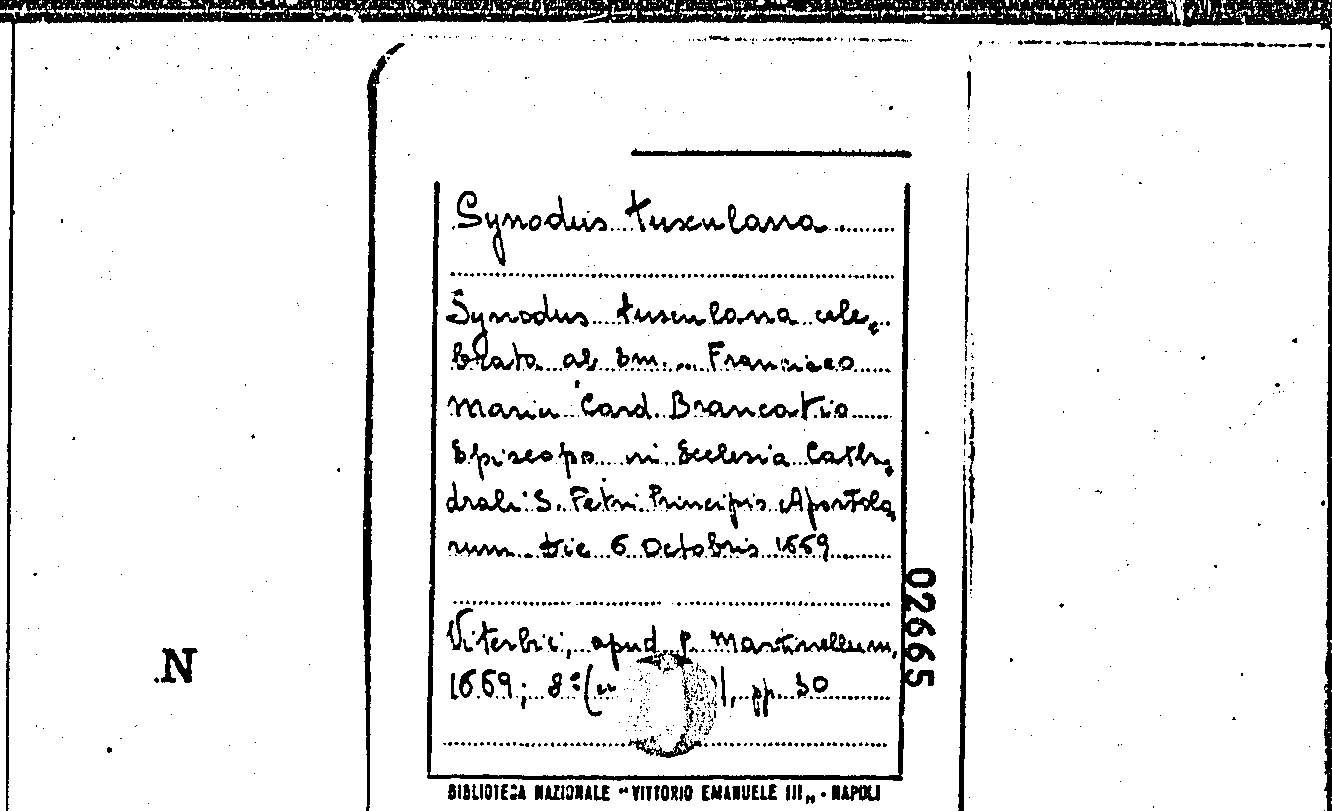 Synodus tusculana
Synodus tusculana cele,
brata ab Em... Francisco
Maria Card. Brancatio
Episcopo in Ecclesia Cathe,
drali S. Petri Principis Apostolo,
rum die 6 Octobris 1669
Viterbii, apud P. Martinellum,
1669; 8º pp. 30
02665
.N
BIBLIOTECA NAZIONALE "VITTORIO EMANUELE III„ - NAPOLI